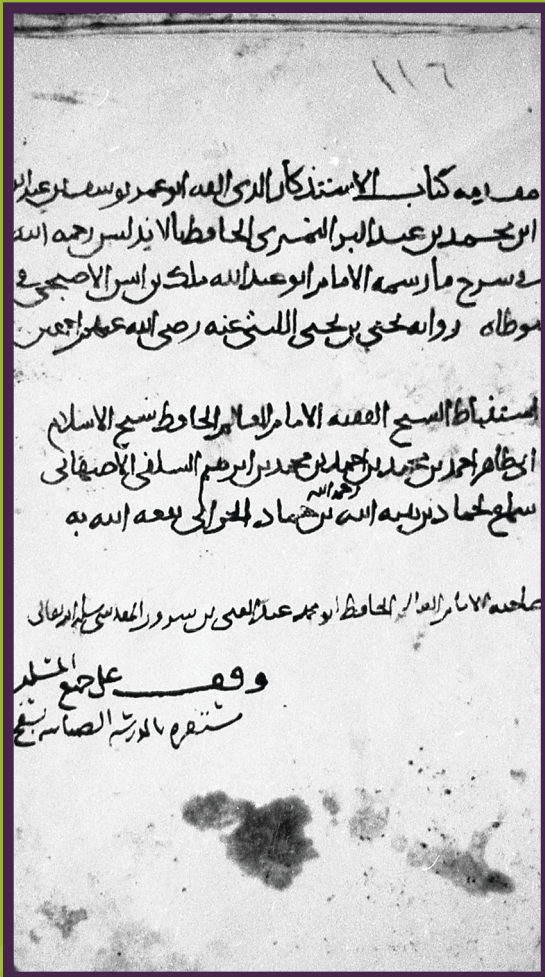 ١١٦
مقدمه كتاب الاستذكار الذي الفه ابو عمر يوسف بن عبد الله
ابن محمد بن عبد البر النمري الحافظ بالاندلس رحمه الله
في شرح ما رسمه الامام ابو عبد الله ملك بن انس الاصبحي في
موطاه روايه يحيى بن يحيى الليثي عنه رضي الله عنهم اجمعين
استنباط الشيخ الفقيه الامام العالم الحافظ شيخ الاسلام
ابي طاهر احمد بن محمد بن احمد بن محمد بن ابرهيم السلفي الاصبهاني
سماع لحماد بن هبه الله بن حماد الحراني نفعه الله به
رحمه الله
صاحبه الامام العالم الحافظ ابو محمد عبد الغني بن سرور المقدسي
وقف على جميع المسلمين
مستقره بالمدرسه الضيائيه بسفح